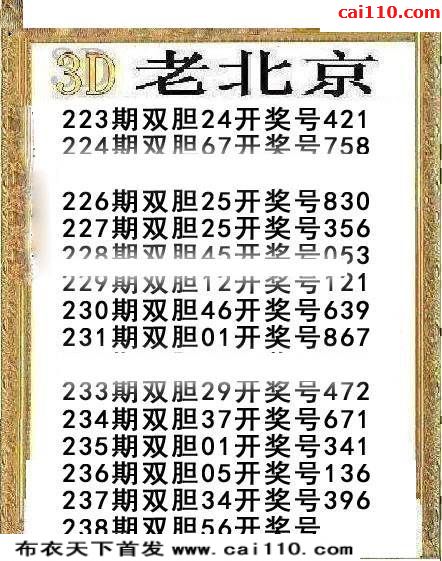 cai110.com
3D 老北京
223期双胆24开奖号421
224期双胆67开奖号758
226期双胆25开奖号830
227期双胆25开奖号356
228期双胆45开奖号053
229期双胆12开奖号121
230期双胆46开奖号639
231期双胆01开奖号867
233期双胆29开奖号472
234期双胆37开奖号671
235期双胆01开奖号341
236期双胆05开奖号136
237期双胆34开奖号396
238期双胆56开奖号
布衣天下首发 www.cai110.com